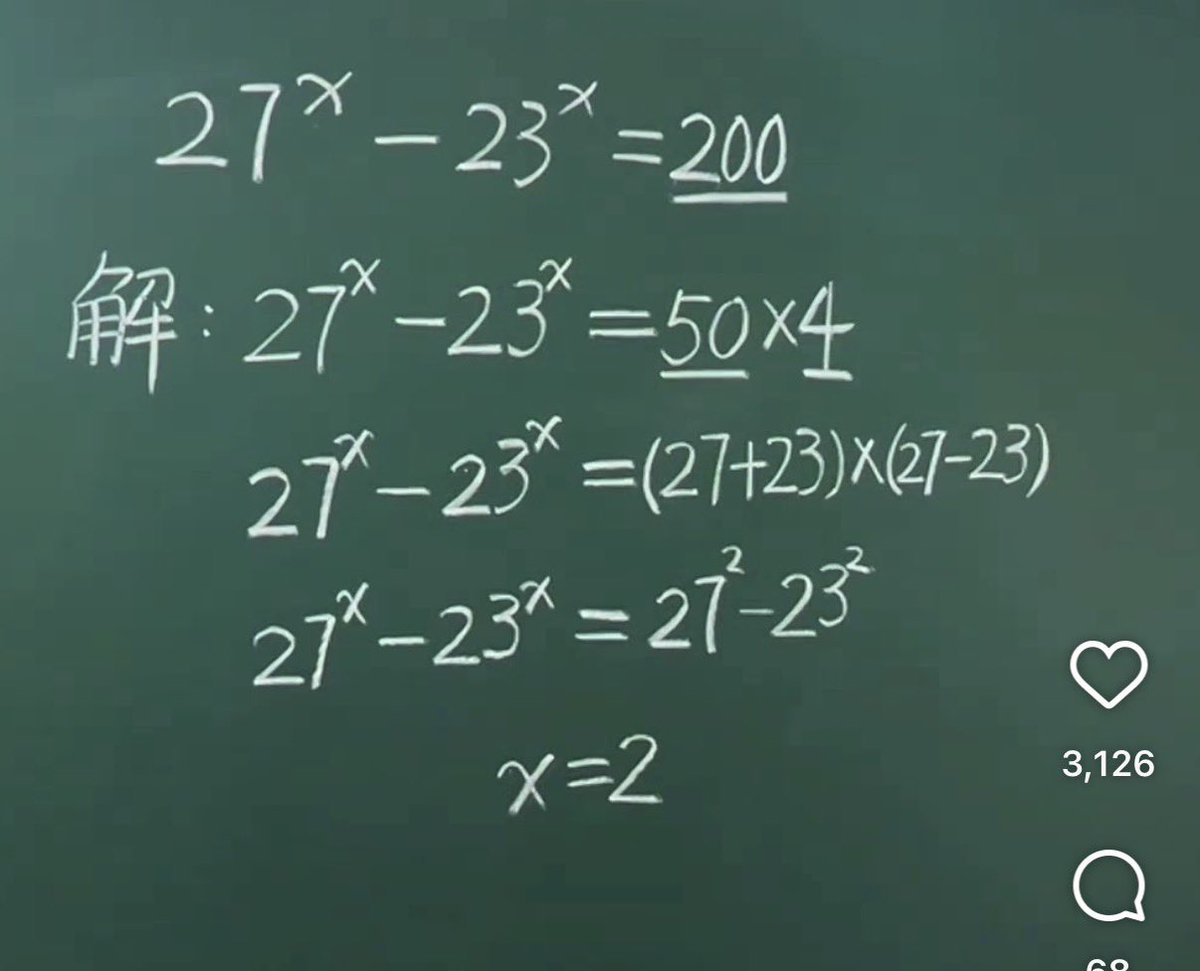 27^x - 23^x = 200
解: 27^x - 23^x = 50 × 4
27^x - 23^x = (27+23)×(27-23)
27^x - 23^x = 27² - 23²
x = 2
3,126
68